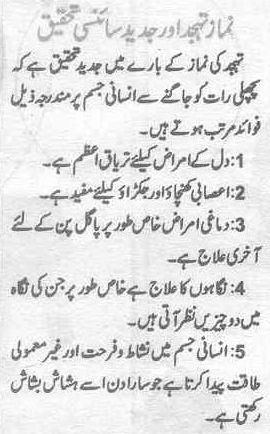 نماز تہجد اور جدید سائنسی تحقیق
تہجد کی نماز کے بارے میں جدید تحقیق ہے کہ
پچھلی رات کو جاگنے سے انسانی جسم پر مندرجہ ذیل
فوائد مرتب ہوتے ہیں۔
1: دل کے امراض کیلئے تریاق اعظم ہے۔
2: اعصابی کھنچاؤ اور جکڑاؤ کیلئے مفید ہے۔
3: دماغی امراض خاص طور پر پاگل پن کے لئے
آخری علاج ہے۔
4: نگاہوں کا علاج ہے خاص طور پر جن کی نگاہ
میں دو چیزیں نظر آتی ہیں۔
5: انسانی جسم میں نشاط و فرحت اور غیر معمولی
طاقت پیدا کرتا ہے جو سارا دن اسے ہشاش بشاش
رکھتی ہے۔